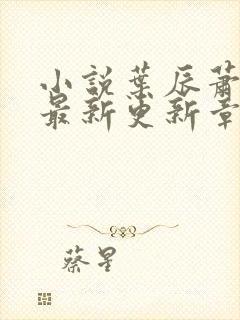 小說葉辰蕭
最新更新章
蔡星